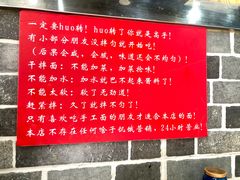 一定要huo转！huo转了你就是高手！
有小部分朋友没拌匀就开始吃！
（后果会咸，会咸，味道还会不均匀）！
干拌面：不能加菜，加菜抢味！
不能加水：加水就巴不起来酱料了！
不能太软：软了无劲道！
赶紧拌：久了就拌不匀了！
只有喜欢吃手工面的朋友才适合本店的面！
本店不存在任何啥子优侬营销，24小时营业！